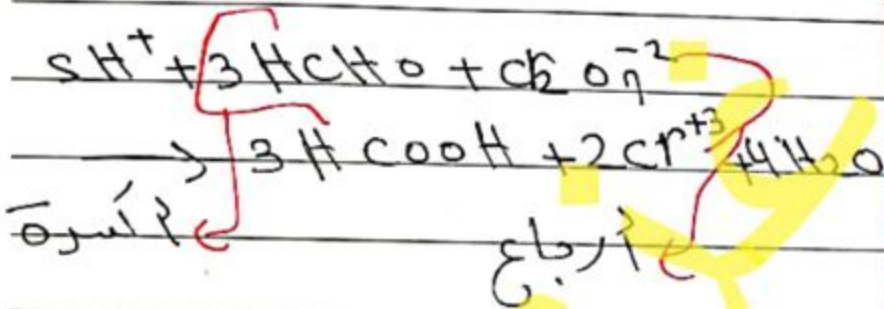 SH⁺ + 3HCHO + Cr₂O₇⁻²
→ 3HCOOH + 2Cr⁺³ + 4H₂O
أكسدة أرجاع